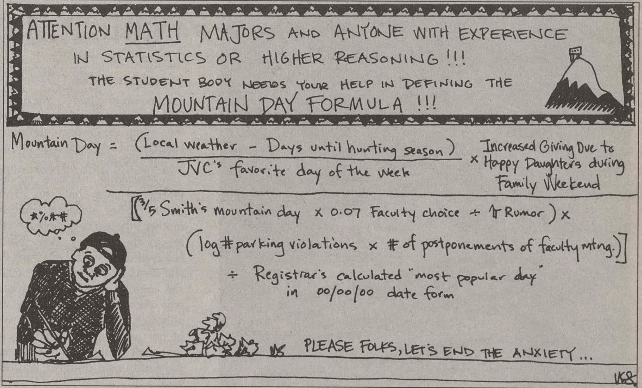 ATTENTION MATH MAJORS AND ANYONE WITH EXPERIENCE
IN STATISTICS OR HIGHER REASONING!!!
THE STUDENT BODY NEEDS YOUR HELP IN DEFINING THE
MOUNTAIN DAY FORMULA!!!
Mountain Day = (Local weather - Days until hunting season)
JVC's favorite day of the week
x Increased Giving Due to
Happy Daughters during
Family Weekend
[(3/5 Smith's mountain day x 0.07 Faculty choice ÷ Rumor) x
(log # parking violations x # of postponements of faculty mtng.)]
÷ Registrar's calculated "most popular day"
in 00/00/00 date form
*%#*
PLEASE FOLKS, LET'S END THE ANXIETY...